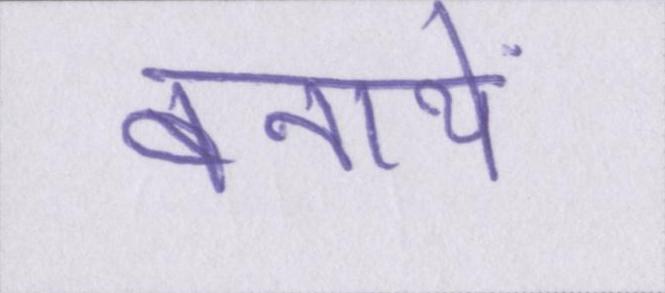 बनायें